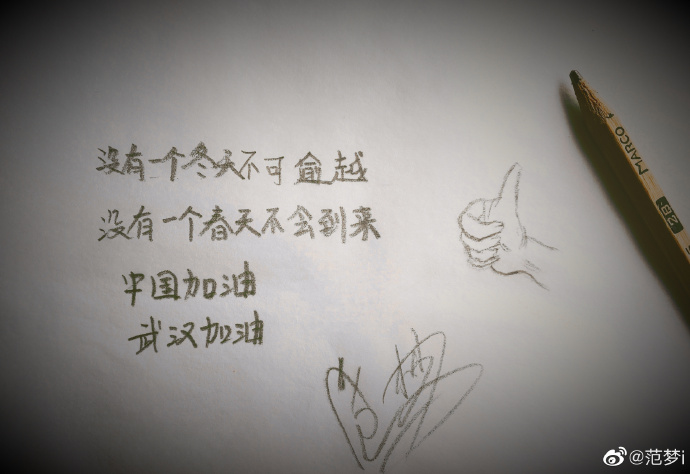 没有一个冬天不可逾越
没有一个春天不会到来
中国加油
武汉加油
MARCO
@范梦i